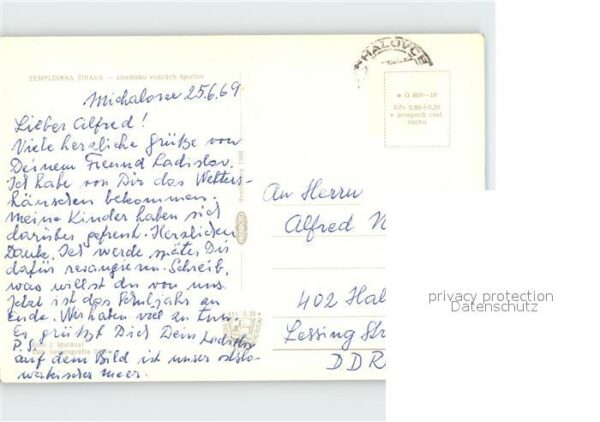 HALOVCE
ZEMPLÍNSKA ŠÍRAVA — stredisko vodných športov
Michalovce 25.6.69
Lieber Alfred!
Viele herzliche Grüße von
Deinem Freund Ladislav.
Ich habe von Dir das Wetters-
häuschen bekommen.
Meine Kinder haben sich
darüber gefreut. Herzlichen
Dank. Ich werde später Dir
dafür revangieren. Schreib,
was willst du von uns.
Jetzt ist das Schuljahr an
Ende. Wir haben viel zu tun.
Es grützt Dich Dein Ladislav
P.S.
auf dem Bild ist unser ostslo-
wakischer Meer.
J. Murányi
Kčs 0,80+0,20
v prospech cest.
ruchu
An Herrn
Alfred
402 Hal
Lessing Str
DDR
privacy protection
Datenschutz